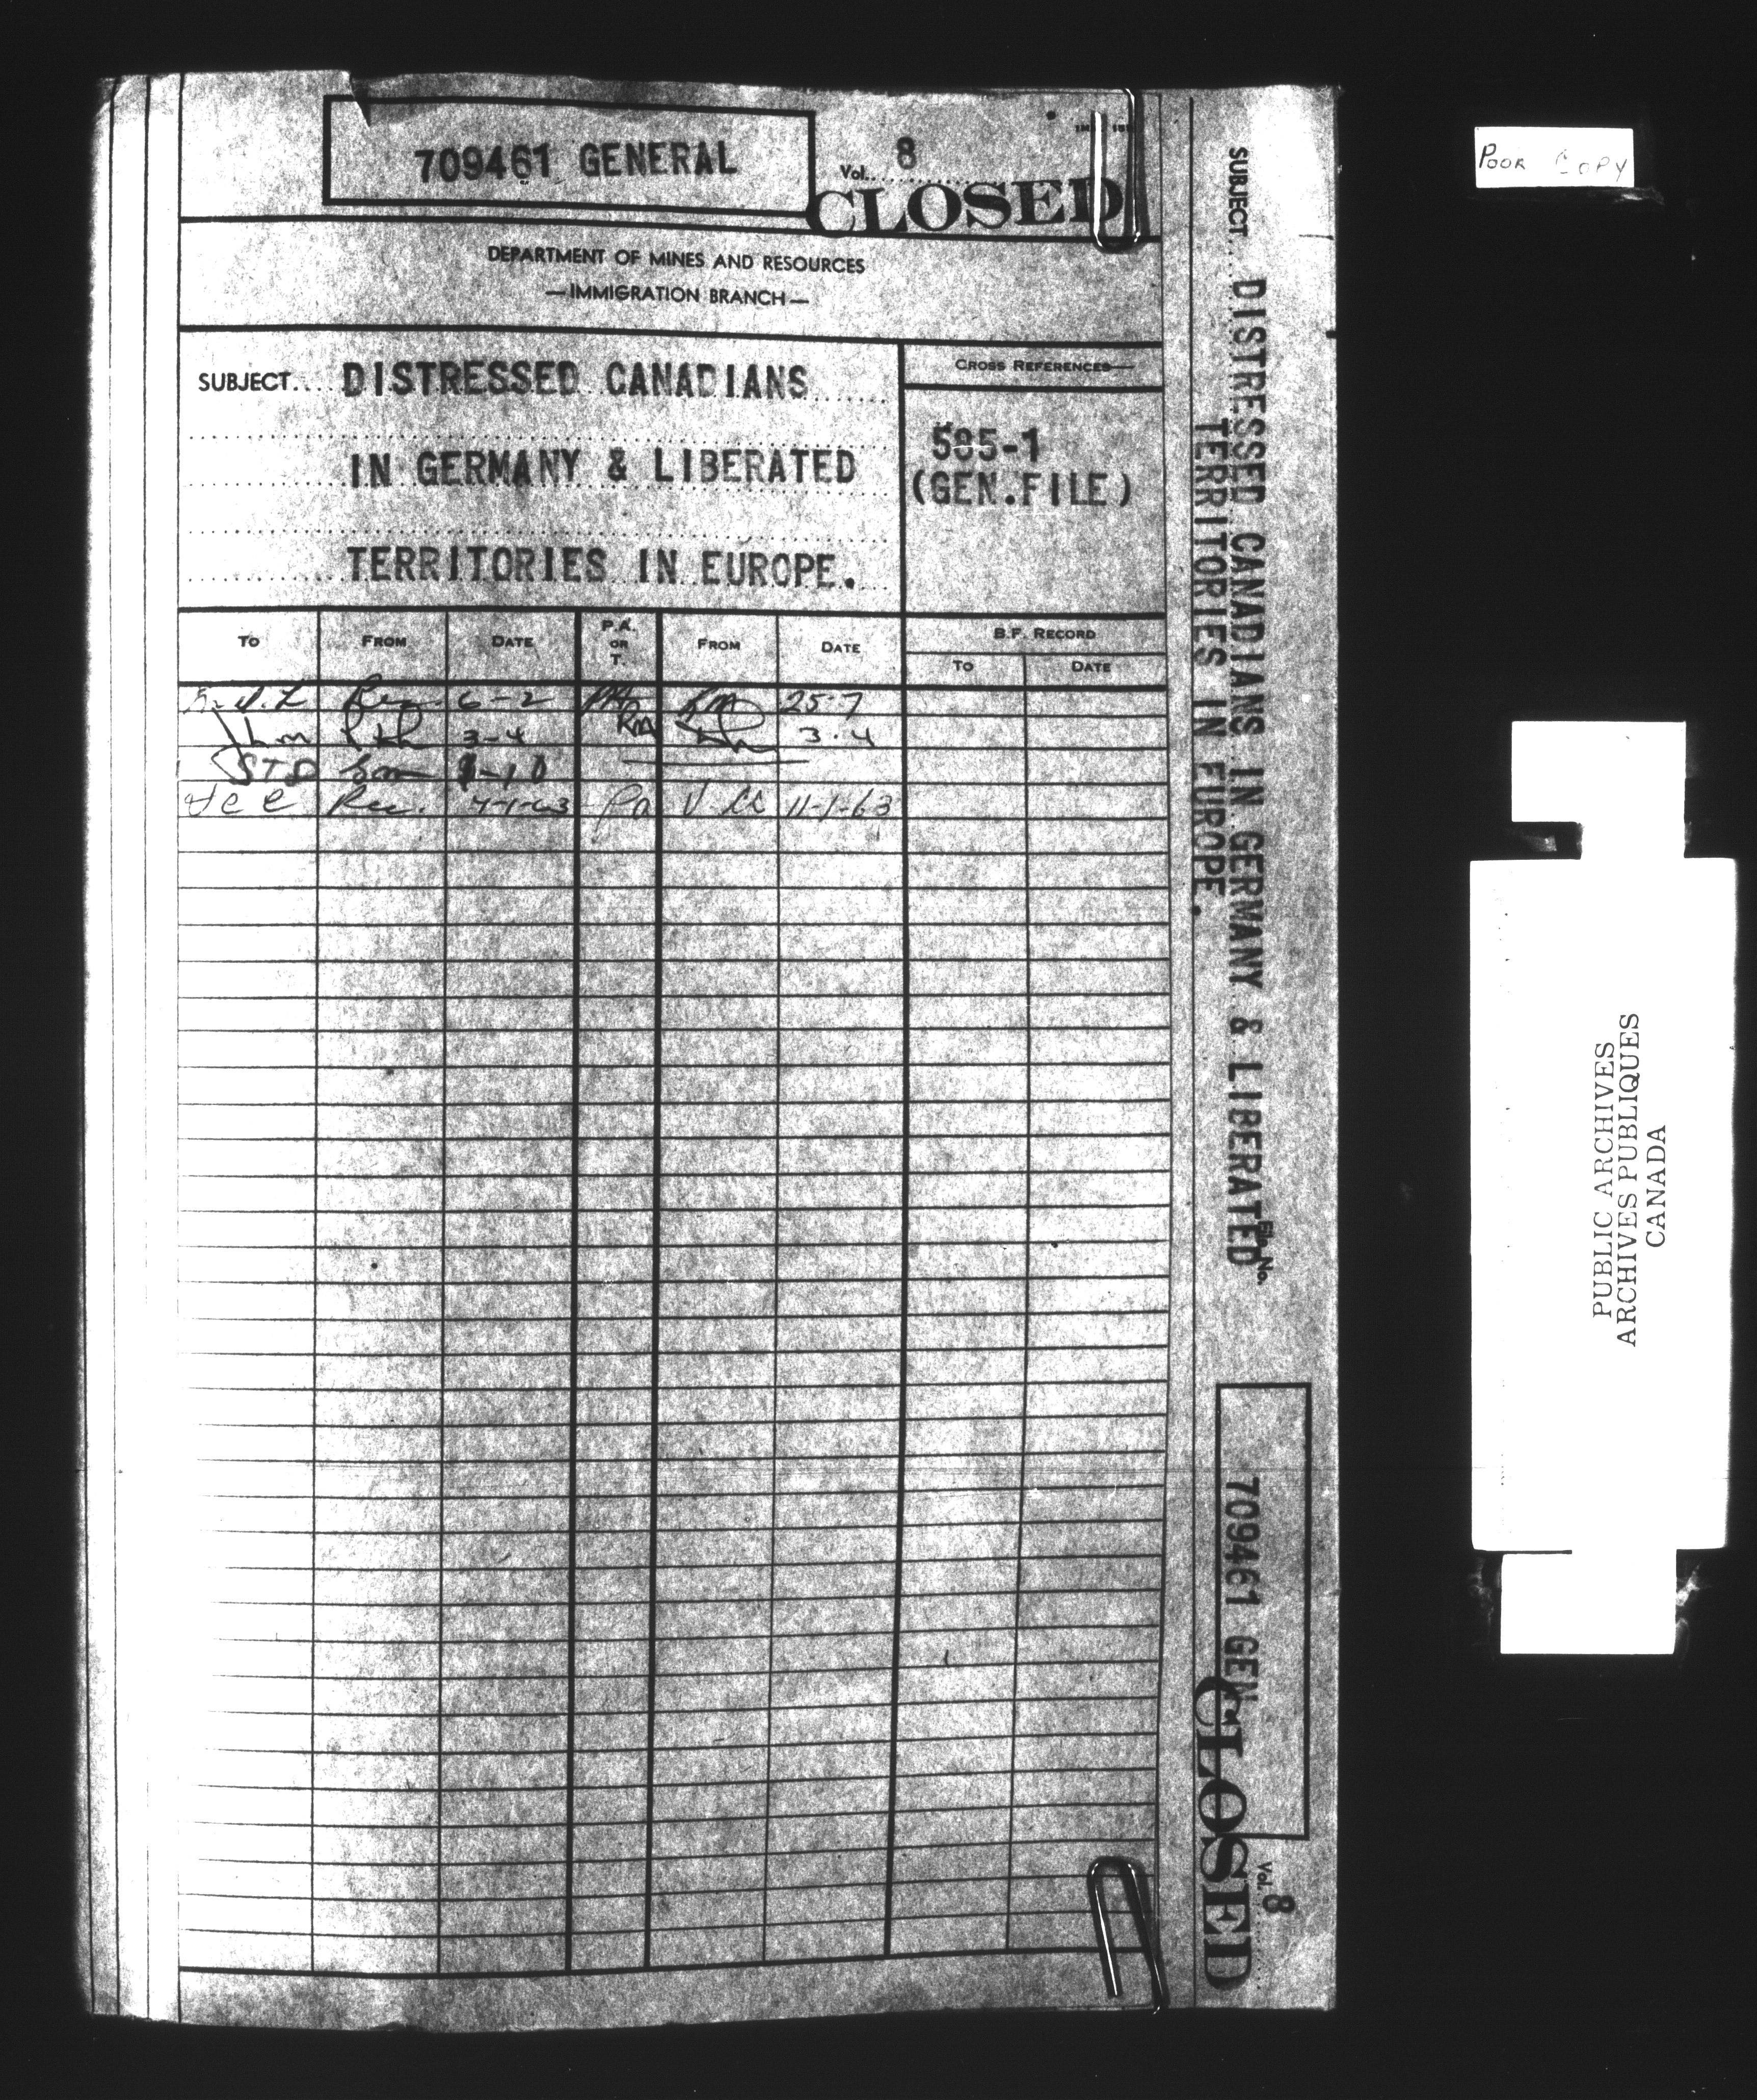 709461 GENERAL
Vol. 8
CLOSED
DEPARTMENT OF MINES AND RESOURCES
—IMMIGRATION BRANCH—
SUBJECT.... DISTRESSED CANADIANS
IN GERMANY & LIBERATED
TERRITORIES IN EUROPE.
CROSS REFERENCES—
585-1
(GEN.FILE)
TO FROM DATE P.A. OR T. FROM DATE B.F. RECORD
TO DATE
6-2 25-7
3-4 3.4
STD
Rec. 4-1-63 Pa 11-1-63
SUBJECT.... DISTRESSED CANADIANS IN GERMANY & LIBERATED
TERRITORIES IN EUROPE.
File No.
709461 GEN.
CLOSED
Vol. 8
POOR COPY
PUBLIC ARCHIVES
ARCHIVES PUBLIQUES
CANADA